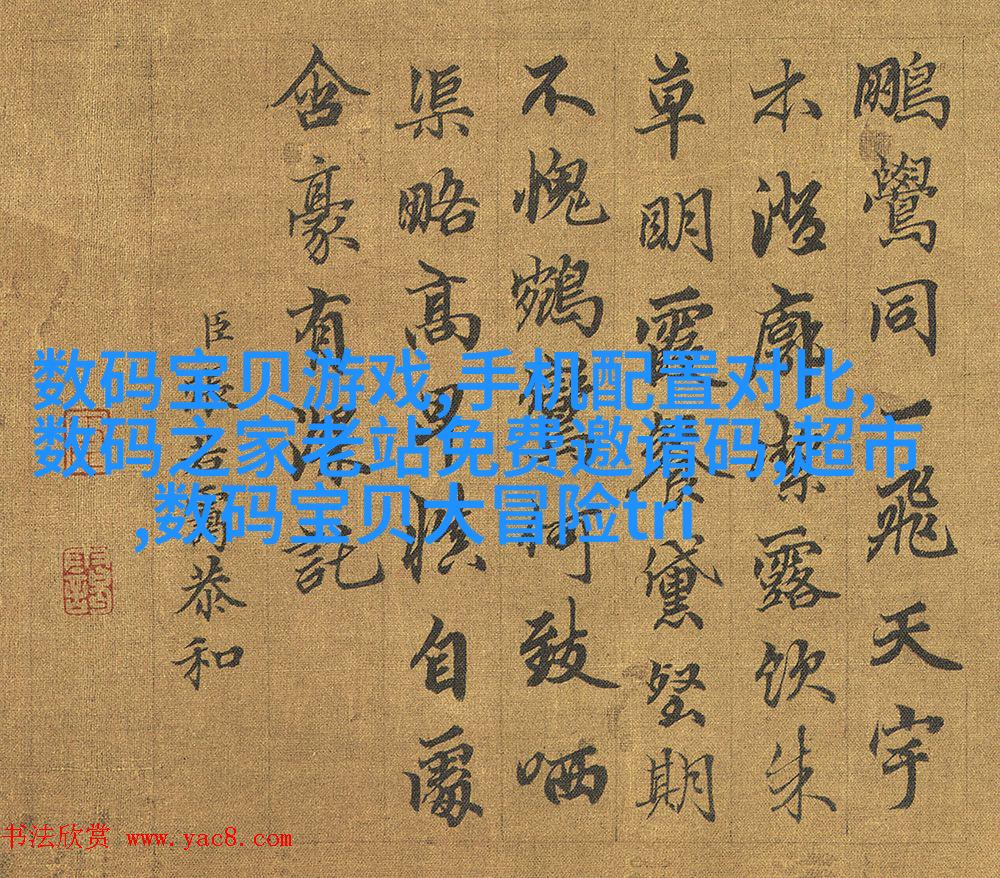 鵬鷽同一飛天宇
木澄廓絜露飲朱
草明霞餐黛堅期
不愧鵷鸞何致哂
渠略高自屬
含豪有託
臣張若靄恭和
数码宝贝游戏,手机配置对比,
数码之家老站免费邀请码,超市
,数码宝贝大冒险tri
书法欣赏 www.yac8.com